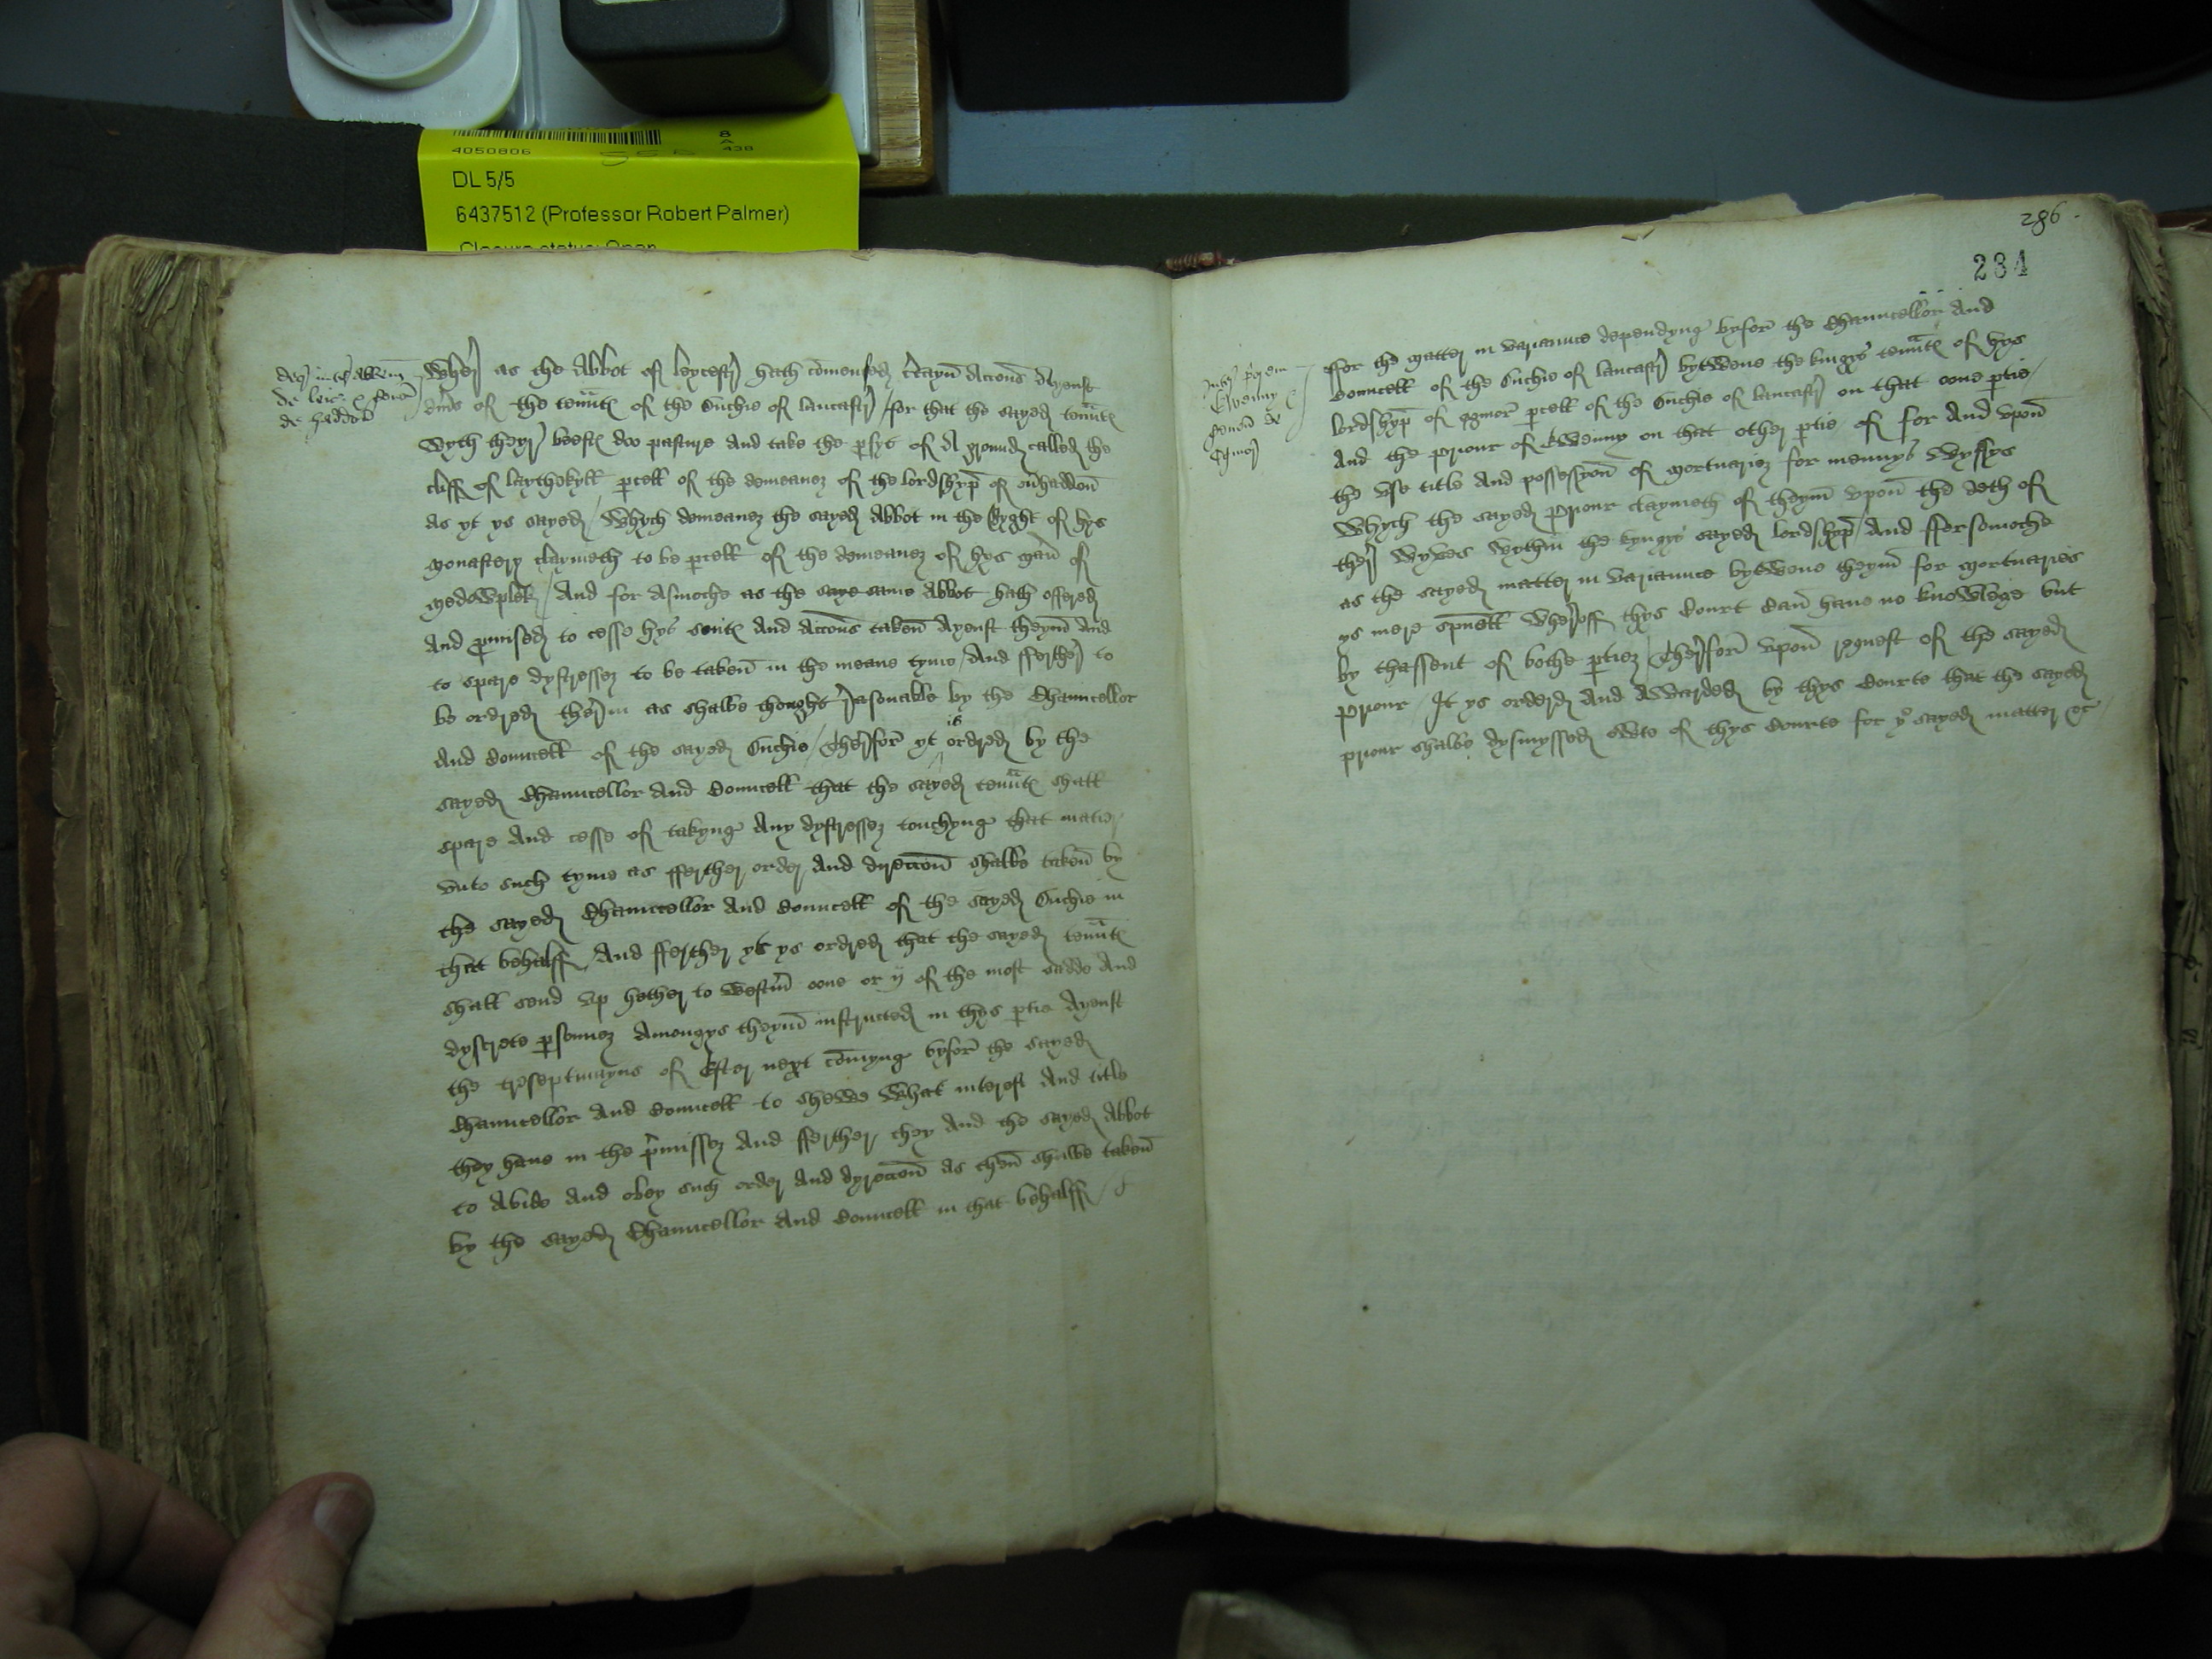 4050806
8
A
438
DL 5/5
6437512 (Professor Robert Palmer)
Closure status: Open
de leic
de haddoñ
Wher as the Abbot of leycestr hath comensed c'tayn accons ayenst
div's of the tenntes of the Duchie of lancastr / for that the sayed tenntes
wyth theyr beestes doo pasture and take the p'fyt of A ground called the
cliff of laythekyll p'cell of the demeanez of the lordshyp of ou'haddon
as yt ys sayed / Whych demeanez the sayed Abbot in the Ryght of hys
monastery claymeth to be p'cell of the demeanez of hys man' of
medowplek / And for Asmoche as the saye same Abbot hath offered
and p'mised to cesse hys suites and accons taken ayenst theym and
to spare dystressez to be taken in the meane tyme / And fferther to
be ordred ther in as shalbe thought reasonable by the Chauncellor
and Councell of the sayed Duchie / Therfor yt is ordred by the
sayed Chauncellor and Councell that the sayed tenntes shall
spare and cesse of takyng any dystressez touchyng that matier
unto such tyme as fferther order and direccon shalbe taken by
the sayed Chauncellor and Councell of the sayed Duchie in
that behalff / And fferther yt ys ordred that the sayed tenntes
shall send up hether to Westm' oone or ij of the most sadde and
dyscrete p'sonnez amongys theym instructed in thys p'tie ayenst
the of Ester next comyng byfor the sayed
Chauncellor and Councell to shewe what interest and title
they have in the p'missez and fferther they and the sayed Abbot
to abide and obey such order and dyreccon as then shalbe taken
by the sayed Chauncellor and Councell in that behalff /
286
284
Ewenny
Egmor
ffor the matter in variaunce dependyng byfor the Chauncellor and
Councell of the Duchie of lancastr bytwene the kinges tenntes of hys
lordshyp of Ogmor p'cell of the Duchie of lancastr on that oone p'tie /
And the priour of Ewenny on that other p'tie of for and upon
the use title and possessyon of mortuariez for mennys Wyffys
Whych the sayed priour claymeth of theym upon the deth of
ther wyves wythin the kyngys sayed lordshyp / And fforsomoche
as the sayed matter in variaunce bytwene theym for mortuaries
ys mere sp'uell wheroff thys Court can have no knowlege but
by thassent of bothe p'tiez / Therfor upon request of the sayed
priour / It ys orderd and Awarded by thys Courte that the sayed
priour shalbe dysmyssed owte of thys Courte for ye sayed matter &c